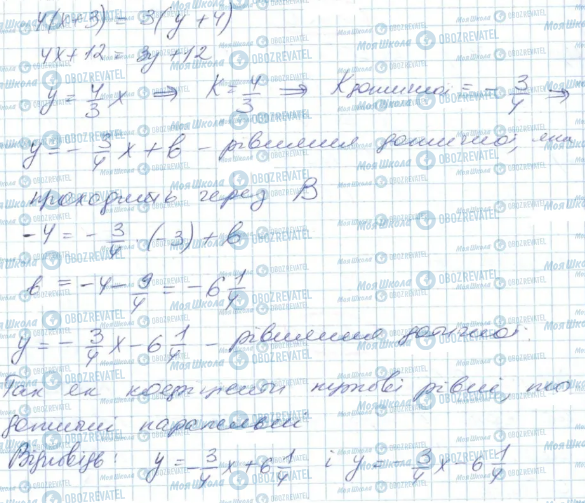 4(x+3) = 3(y+4)
4x+12 = 3y+12
y = 4/3 x ⇒ K = 4/3 ⇒ Kдотичної = - 3/4 ⇒
y = - 3/4 x + b - рівняння дотичної, яка
проходить через B
-4 = - 3/4 · (-3) + b
b = -4 - 9/4 = -6 1/4
y = - 3/4 x - 6 1/4 - рівняння дотичної.
Так як коефіцієнти кутові рівні, то
дотичні паралельні
Відповідь: y = - 3/4 x + 6 1/4 і y = - 3/4 x - 6 1/4
Моя Школа
OBOZREVATEL